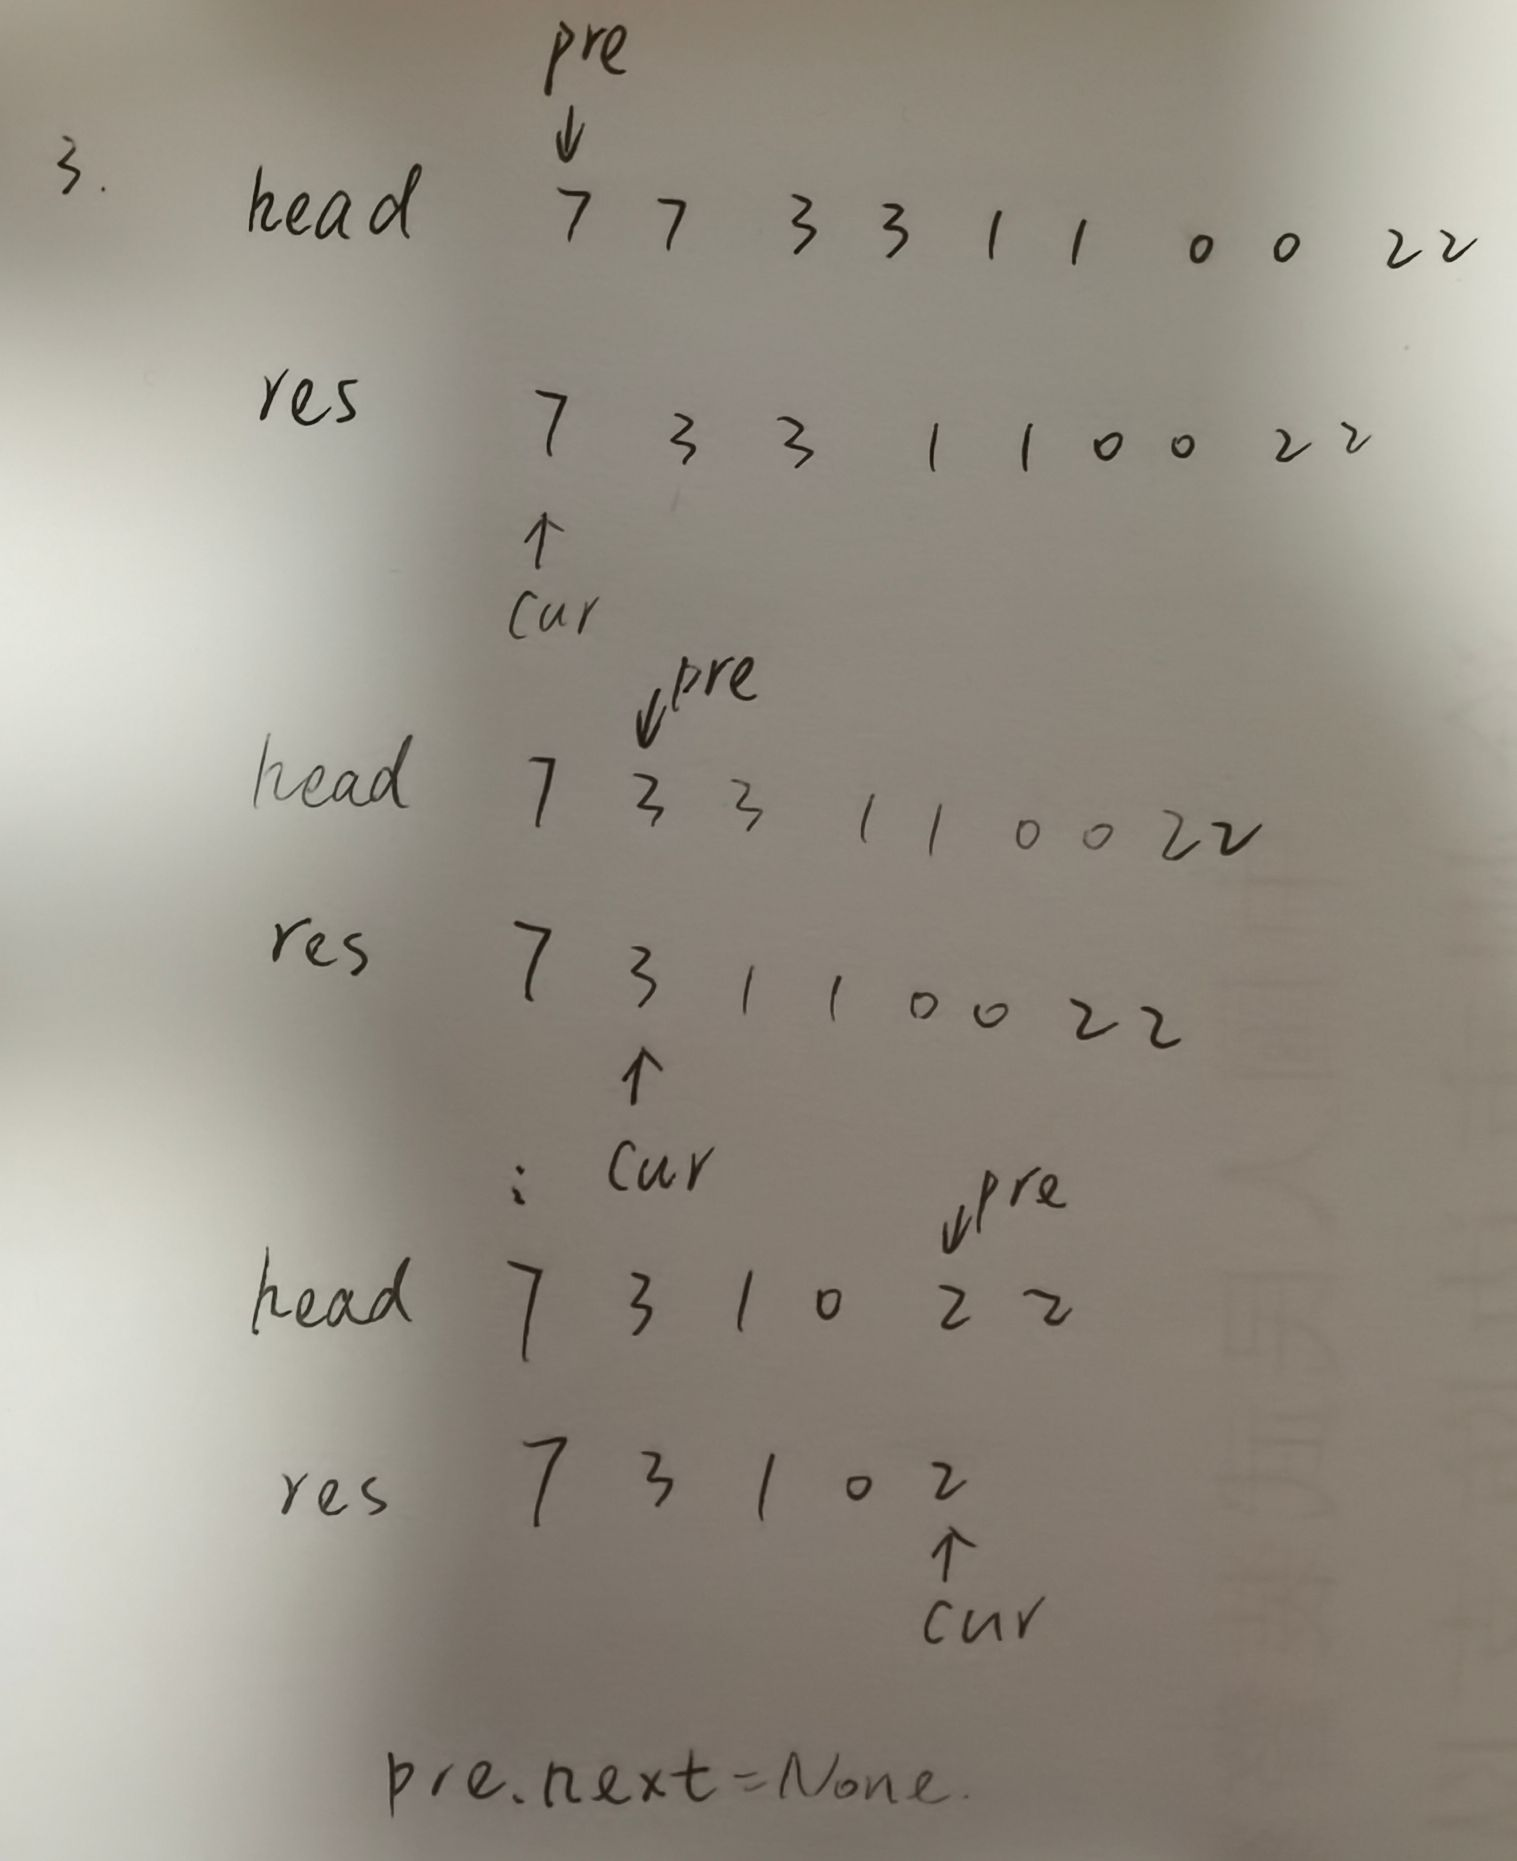 pre
↓
3. head 7 7 3 3 1 1 0 0 2 2
res 7 3 3 1 1 0 0 2 2
↑
cur
↓pre
head 7 3 3 1 1 0 0 2 2
res 7 3 1 1 0 0 2 2
↑
: cur
↓pre
head 7 3 1 0 2 2
res 7 3 1 0 2
↑
cur
pre.next=None.